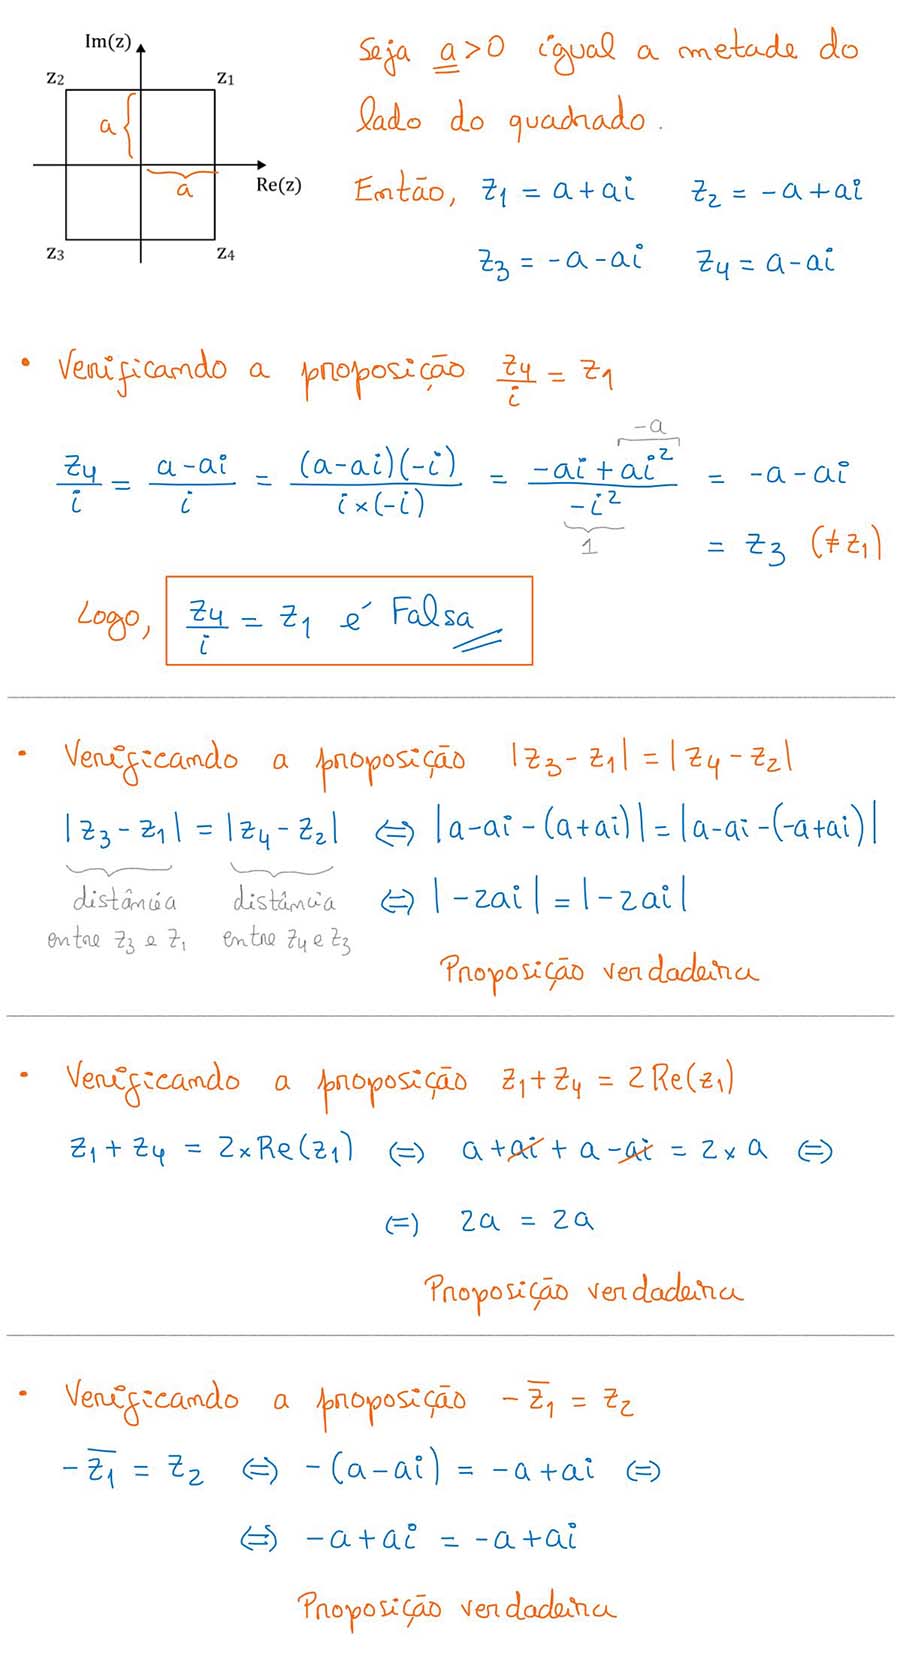 Im(z)
z₂ z₁
a
a Re(z)
z₃ z₄
Seja a>0 igual a metade do
lado do quadrado.
Então, z₁ = a+ai z₂ = -a+ai
z₃ = -a-ai z₄ = a-ai
• Verificando a proposição z₄/i = z₁
z₄/i = (a-ai)/i = (a-ai)(-i)/(i×(-i)) = (-ai+ai²)/(-i²) = -a-ai
-a
1
= z₃ (≠z₁)
Logo, z₄/i = z₁ é Falsa
• Verificando a proposição |z₃-z₁| = |z₄-z₂|
|z₃-z₁| = |z₄-z₂| ⇔ |a-ai-(a+ai)| = |a-ai-(-a+ai)|
distância distância ⇔ |-2ai| = |-2ai|
entre z₃ e z₁ entre z₄ e z₃
Proposição verdadeira
• Verificando a proposição z₁+z₄ = 2Re(z₁)
z₁+z₄ = 2×Re(z₁) ⇔ a+ai+a-ai = 2×a ⇔
⇔ 2a = 2a
Proposição verdadeira
• Verificando a proposição -z̄₁ = z₂
-z̄₁ = z₂ ⇔ -(a-ai) = -a+ai ⇔
⇔ -a+ai = -a+ai
Proposição verdadeira